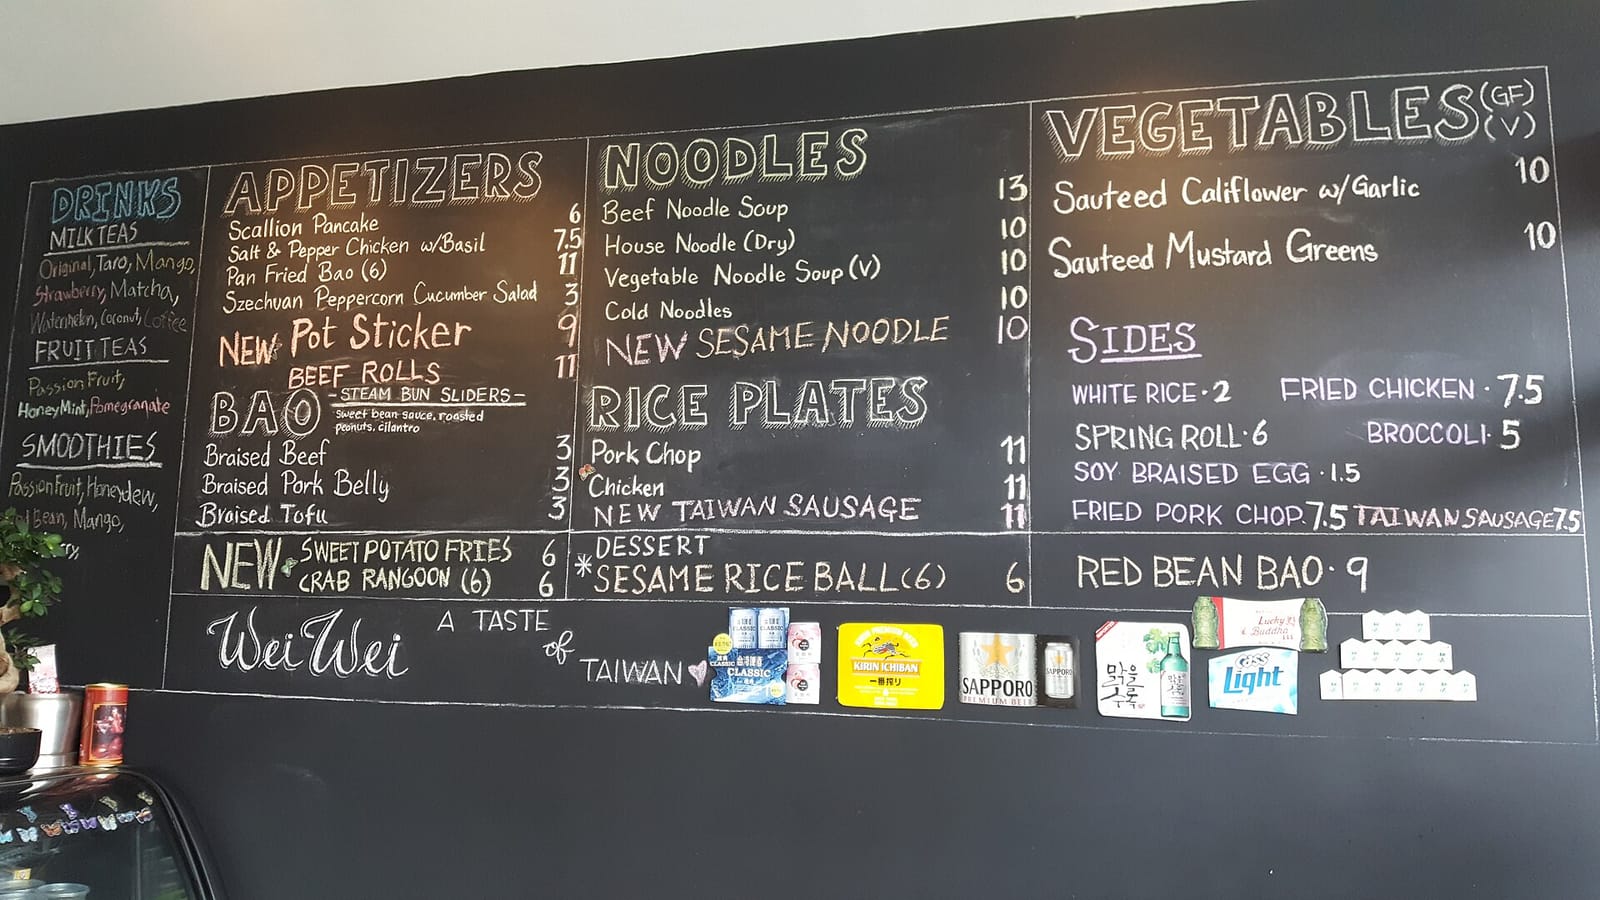 DRINKS
MILK TEAS
Original, Taro, Mango,
Strawberry, Matcha,
Watermelon, Coconut, Coffee
FRUIT TEAS
Passion Fruit,
Honey Mint, Pomegranate
SMOOTHIES
Passion Fruit, Honeydew,
Bean, Mango,
APPETIZERS
Scallion Pancake 6
Salt & Pepper Chicken w/Basil 7.5
Pan Fried Bao (6) 11
Szechuan Peppercorn Cucumber Salad 3
NEW Pot Sticker 9
BEEF ROLLS 11
BAO - STEAM BUN SLIDERS -
sweet bean sauce, roasted
peanuts, cilantro
Braised Beef 3
Braised Pork Belly 3
Braised Tofu 3
NEW SWEET POTATO FRIES 6
CRAB RANGOON (6) 6
NOODLES
Beef Noodle Soup 13
House Noodle (Dry) 10
Vegetable Noodle Soup (V) 10
Cold Noodles 10
NEW SESAME NOODLE 10
RICE PLATES
Pork Chop 11
Chicken 11
NEW TAIWAN SAUSAGE 11
DESSERT
* SESAME RICE BALL (6) 6
VEGETABLES (GF)
(V)
Sauteed Califlower w/Garlic 10
Sauteed Mustard Greens 10
SIDES
WHITE RICE · 2 FRIED CHICKEN · 7.5
SPRING ROLL · 6 BROCCOLI · 5
SOY BRAISED EGG · 1.5
FRIED PORK CHOP · 7.5 TAIWAN SAUSAGE 7.5
RED BEAN BAO · 9
Wei Wei
A TASTE
of
TAIWAN
CLASSIC
CLASSIC
CLASSIC
CLASSIC
KIRIN ICHIBAN
一番搾り
SAPPORO
PREMIUM BEER
SAPPORO
Lucky
Buddha
Cass
Light